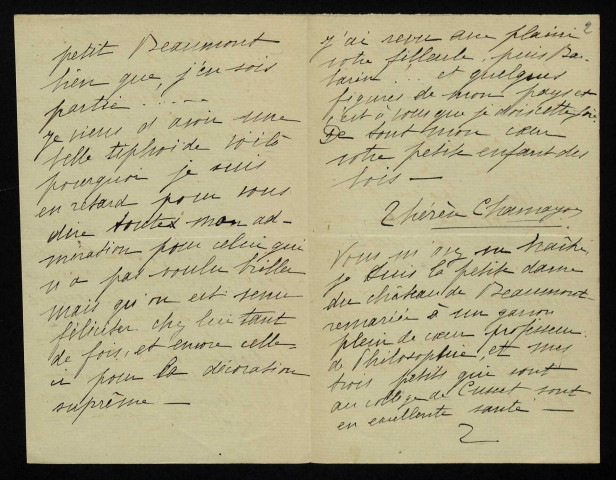 petit Beaumont
bien que, j'en sois
partie .....
Je viens d'avoir une
belle typhoïde voilà
pourquoi je suis
en retard pour vous
dire toutes mon ad-
miration pour celui qui
n'a pas voulu briller
mais qu'on est venu
féliciter chez lui tant
de fois, et encore celle-
ci pour la décoration
suprême —
2
j'ai revu avec plaisir
votre filleule, puis
... et quelques
figures de mon pays et
c'est à vous que je dois cette joie.
De tout mon cœur
votre petit enfant des
bois —
Thérèse Chamayou
Vous m'avez Maître,
je suis la petite dame
du château de Beaumont
remariée à un garçon
plein de cœur professeur
de Philosophie, et mes
trois petits qui sont
au collège de Cusset sont
en excellente santé —